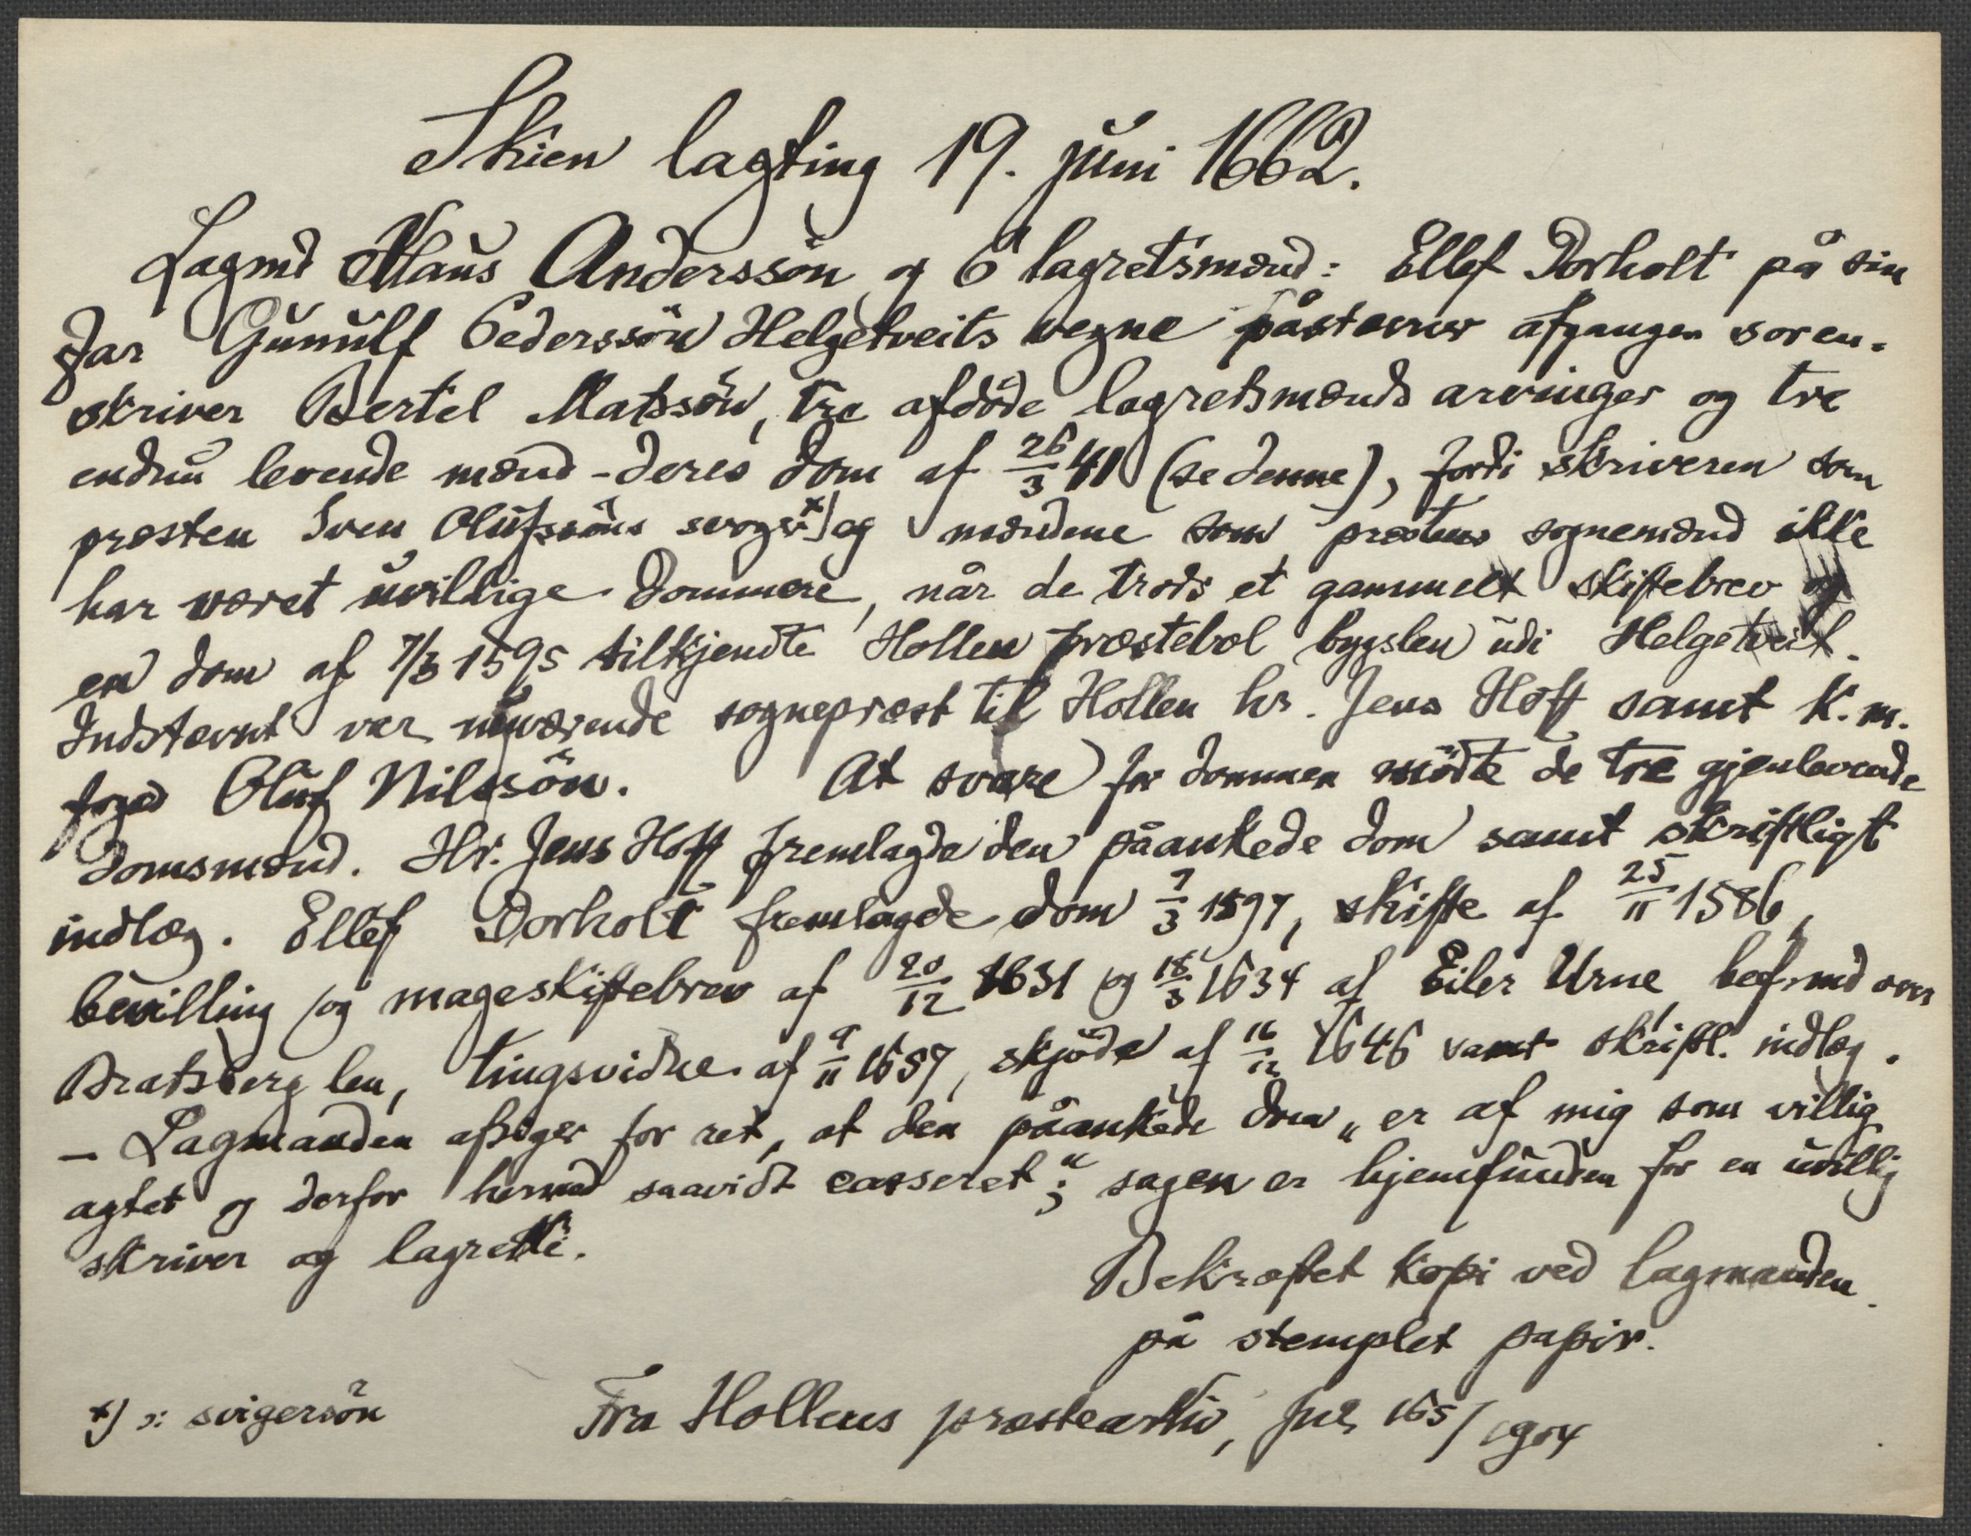 Skien lagting 19. juni 1662.
Lagmd Klaus Anderssön og 6 lagretsmænd: Ellef Dorholt på sin
far Gunulf Pederssön Helgetveits vegne påstevner afgangen soren-
skriver Bertel Matssön, tre afdöde lagretsmænds arvinger og tre
endnu levende mænd - deres dom af 26/3 41 (se denne), fordi skriveren som
præsten Sven Olufssöns svoger x) og mændene som præstens sognemænd ikke
har været uvillige dommere, når de trods et gammelt skiftebrev og
en dom af 7/3 1595 tilkjendte Hollen præstebol bygslen udi Helgetveit.
Indstevnt var nuværende sognepræst til Hollen hr. Jens Hoff samt K. m.
foged Oluf Nilssön. At svare for dommen mödte de tre gjenlevende
domsmænd. Hr. Jens Hoff fremlagde den påankede dom samt skriftligt
indlæg. Ellef Dorholt fremlagde dom 7/3 1597, skifte af 25/11 1586,
bevilling og mageskiftebrev af 20/12 1631 og 18/3 1634 af Eiler Urne, bef.md over
Bratsberg len, tingsvidne af 9/11 1657, skjöde af 16/12 1646 samt skriftl. indlæg.
— Lagmanden afsiger for ret, at den påankede dom „er af mig som villig
agtet og derfor hermed saavidt casseret;“ sagen er hjemfunden for en uvillig
skriver og lagrette.
Bekræftet kopi ved lagmanden
på stemplet papir.
x) ɔ: svigersön
Fra Hollens præstearkiv, jnl 165/1904